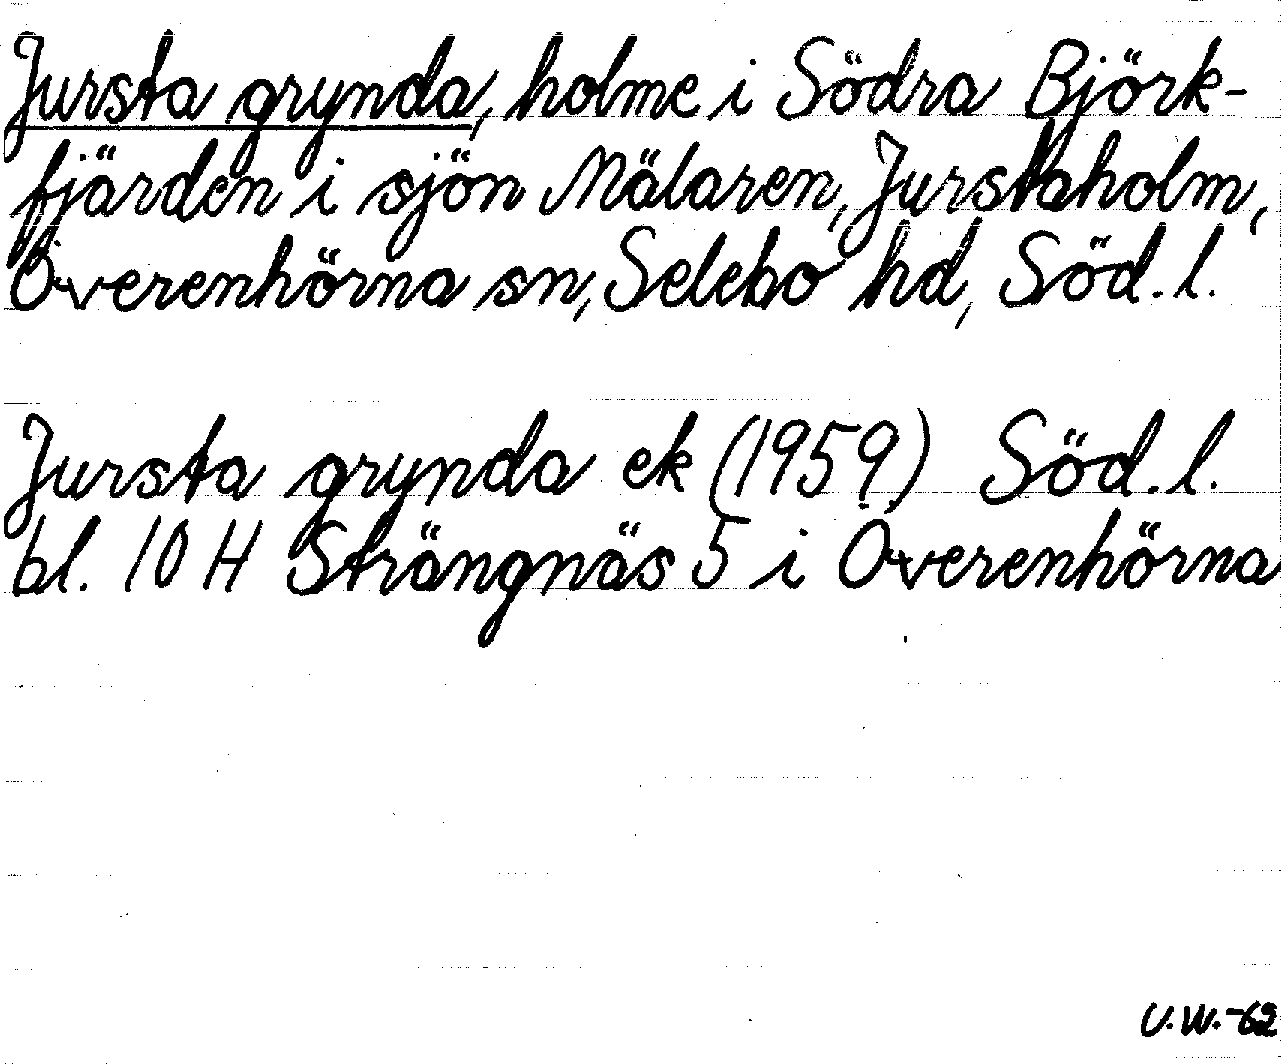 Jursta grynda, holme i Södra Björk-
fjärden i sjön Mälaren, Jurstaholm,
Överenhörna sn, Selebo hd, Söd. l.
Jursta grynda ek (1959) Söd. l.
bl. 10 H Strängnäs 5 i Överenhörna
U.W.-62